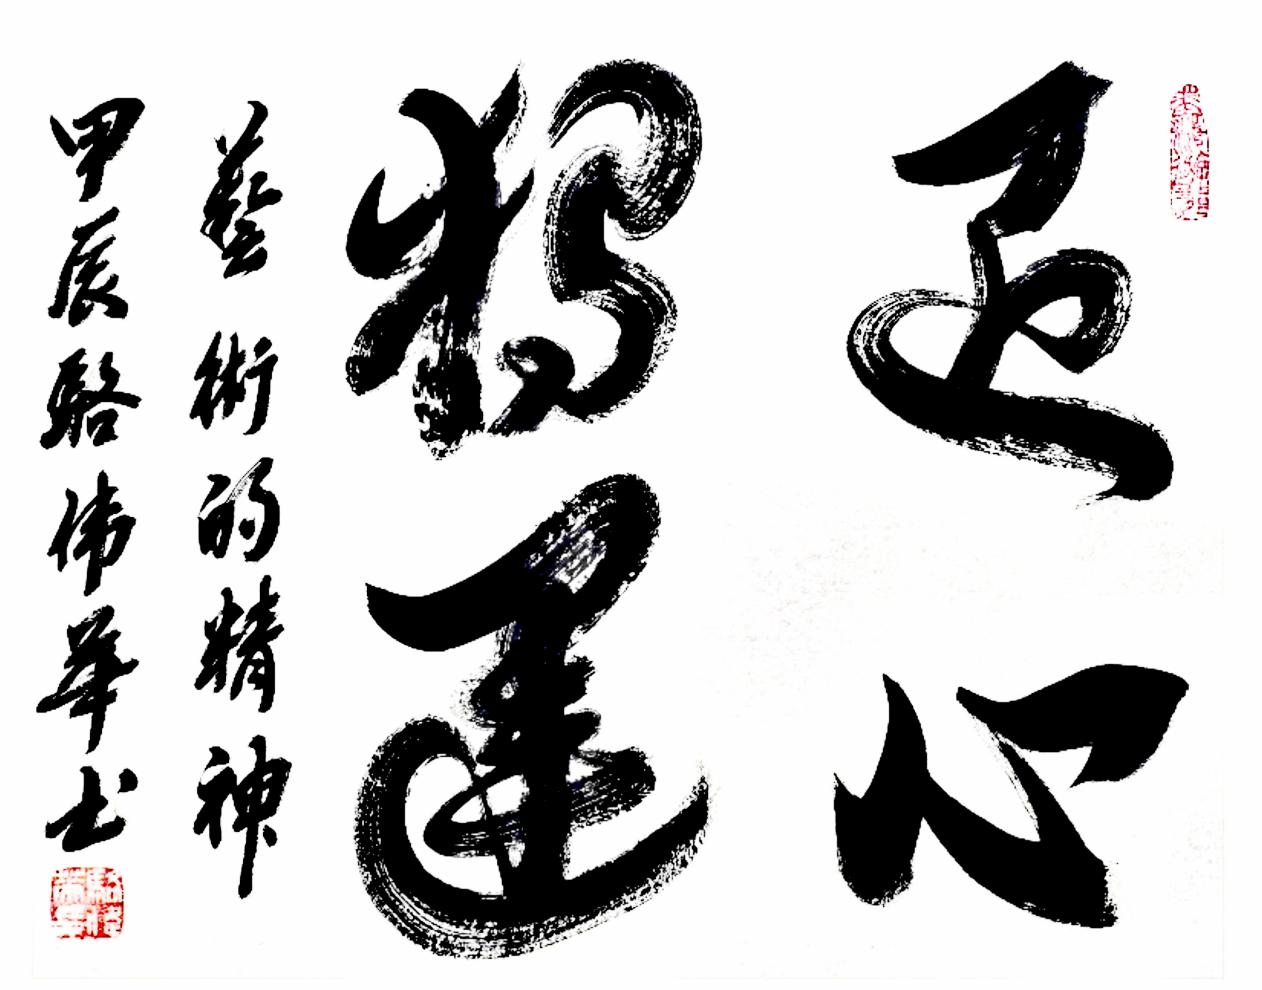 匠心
獨運
藝術的精神
甲辰駱伟華书